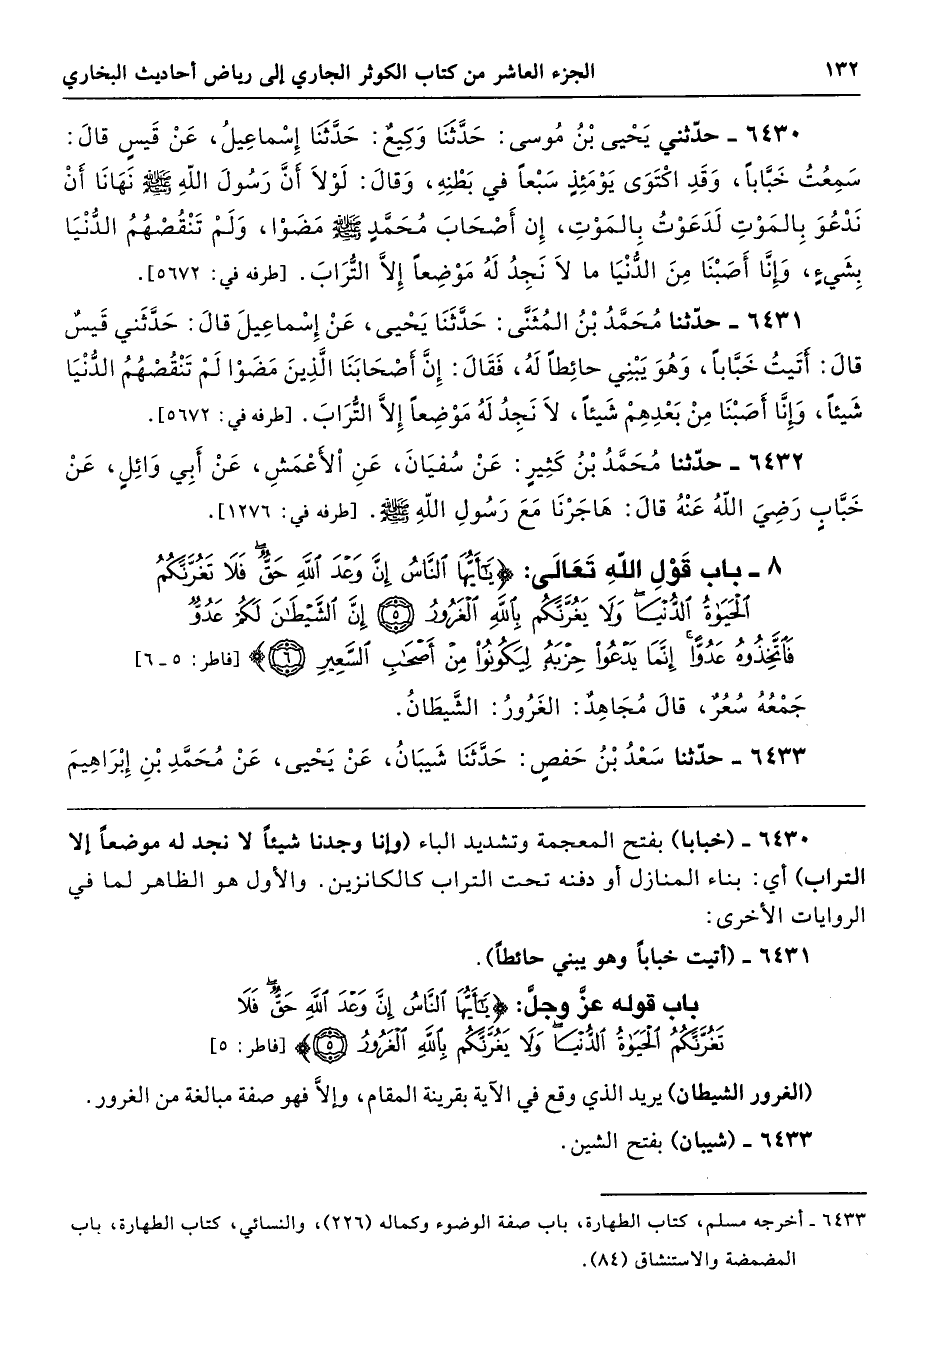 ١٣٢ الجزء العاشر من كتاب الكوثر الجاري إلى رياض أحاديث البخاري
٦٤٣٠ ـ حدّثني يَحْيى بْنُ مُوسى: حَدَّثَنَا وَكِيعٌ: حَدَّثَنَا إِسْماعِيلُ، عَنْ قَيسٍ قالَ:
سَمِعْتُ خَبَّاباً، وَقَدِ اكْتَوَى يَوْمَئِذٍ سَبْعاً في بَطْنِهِ، وَقالَ: لَوْلاَ أَنَّ رَسُولَ اللّهِ ﷺ نَهَانَا أَنْ
نَدْعُوَ بِالمَوْتِ لَدَعَوْتُ بِالمَوْتِ، إِن أَصْحَابَ مُحَمَّدٍ ﷺ مَضَوْا، وَلَمْ تَنْقُصْهُمُ الدُّنْيَا
بِشَيءٍ، وَإِنَّا أَصَبْنَا مِنَ الدُّنْيَا ما لاَ نَجِدُ لَهُ مَوْضِعاً إِلاَّ التُّرَابَ. [طرفه في: ٥٦٧٢].
٦٤٣١ ـ حدّثنا مُحَمَّدُ بْنُ المُثَنَّى: حَدَّثَنَا يَحْيى، عَنْ إِسْماعِيلَ قالَ: حَدَّثَني قَيسٌ
قالَ: أَتَيتُ خَبَّاباً، وَهُوَ يَبْنِي حائِطاً لَهُ، فَقَالَ: إِنَّ أَصْحَابَنَا الَّذِينَ مَضَوْا لَمْ تَنْقُصْهُمُ الدُّنْيَا
شَيئاً، وَإِنَّا أَصَبْنَا مِنْ بَعْدِهِمْ شَيئاً، لاَ نَجِدُ لَهُ مَوْضِعاً إِلاَّ التُّرَابَ. [طرفه في: ٥٦٧٢].
٦٤٣٢ ـ حدّثنا مُحَمَّدُ بْنُ كَثِيرٍ: عَنْ سُفيَانَ، عَنِ الأَعْمَشِ، عَنْ أَبِي وَائِلٍ، عَنْ
خَبَّابٍ رَضِيَ اللّهُ عَنْهُ قالَ: هَاجَرْنَا مَعَ رَسُولِ اللّهِ ﷺ. [طرفه في: ١٢٧٦].
٨ ـ باب قَوْلِ اللّهِ تَعَالَى: ﴿يَٰٓأَيُّهَا ٱلنَّاسُ إِنَّ وَعْدَ ٱللَّهِ حَقٌّۖ فَلَا تَغُرَّنَّكُمُ
ٱلْحَيَوٰةُ ٱلدُّنْيَاۖ وَلَا يَغُرَّنَّكُم بِٱللَّهِ ٱلْغَرُورُ ۝٥ إِنَّ ٱلشَّيْطَٰنَ لَكُمْ عَدُوٌّ
فَٱتَّخِذُوهُ عَدُوًّاۚ إِنَّمَا يَدْعُوا۟ حِزْبَهُۥ لِيَكُونُوا۟ مِنْ أَصْحَٰبِ ٱلسَّعِيرِ ۝٦﴾ [فاطر: ٥ ـ ٦]
جَمْعُهُ سُعُرٌ، قالَ مُجَاهِدٌ: الغَرُورُ: الشَّيطَانُ.
٦٤٣٣ ـ حدّثنا سَعْدُ بْنُ حَفصٍ: حَدَّثَنَا شَيبَانُ، عَنْ يَحْيى، عَنْ مُحَمَّدِ بْنِ إِبْرَاهِيمَ
٦٤٣٠ ـ (خبابا) بفتح المعجمة وتشديد الباء (وإنا وجدنا شيئاً لا نجد له موضعاً إلا
التراب) أي: بناء المنازل أو دفنه تحت التراب كالكانزين. والأول هو الظاهر لما في
الروايات الأخرى:
٦٤٣١ ـ (أتيت خباباً وهو يبني حائطاً).
باب قوله عزَّ وجلَّ: ﴿يَٰٓأَيُّهَا ٱلنَّاسُ إِنَّ وَعْدَ ٱللَّهِ حَقٌّۖ فَلَا
تَغُرَّنَّكُمُ ٱلْحَيَوٰةُ ٱلدُّنْيَاۖ وَلَا يَغُرَّنَّكُم بِٱللَّهِ ٱلْغَرُورُ ۝٥﴾ [فاطر: ٥]
(الغرور الشيطان) يريد الذي وقع في الآية بقرينة المقام، وإلاَّ فهو صفة مبالغة من الغرور.
٦٤٣٣ ـ (شيبان) بفتح الشين.
٦٤٣٣ ـ أخرجه مسلم، كتاب الطهارة، باب صفة الوضوء وكماله (٢٢٦)، والنسائي، كتاب الطهارة، باب
المضمضة والاستنشاق (٨٤).